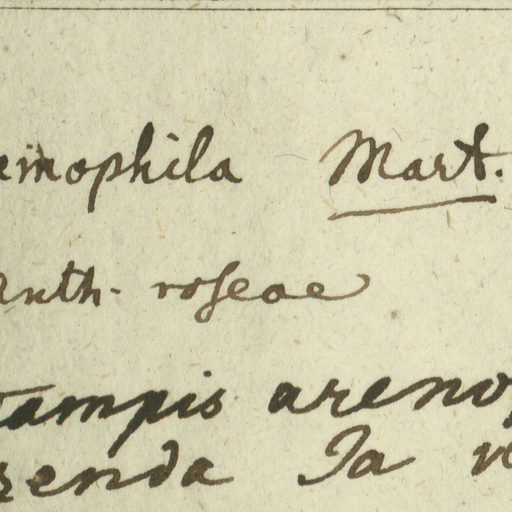 mophila Mart.
anth. roseae
campis areno
zenda Ja